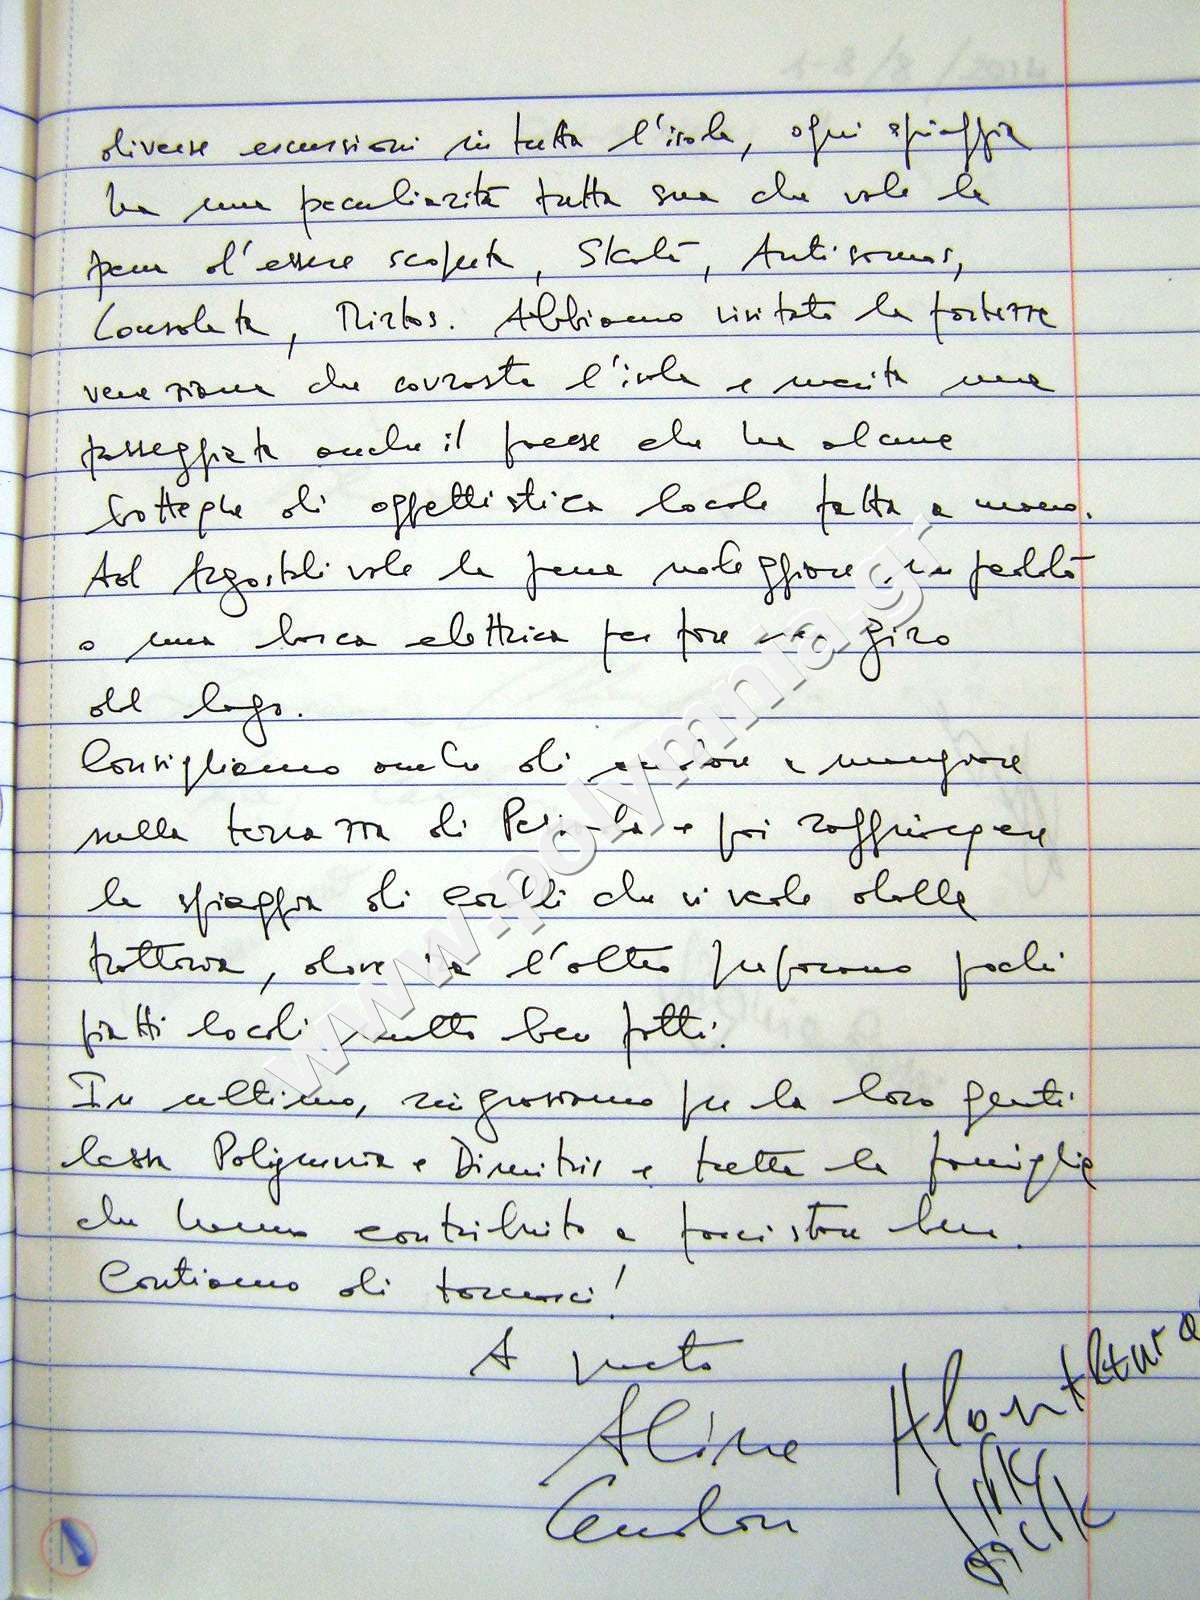 diverse escursioni in tutta l'isola, ogni spiaggia
ha una peculiarità tutta sua che vale la
pena d'essere scoperta, Skala, Antisamos,
Mirtos. Abbiamo visitato la fortezza
veneziana che sovrasta l'isola e merita una
passeggiata anche il paese che ha alcune
botteghe di oggettistica locale fatta a mano.
Ad Argostoli vale la pena noleggiare un pedalò
o una barca elettrica per fare un giro
del lago.
Consigliamo anche di andare a mangiare
sulla terrazza di e poi raggiungere
la spiaggia di che si vede dalla
trattoria, dove tra l'altro preparano pochi
piatti locali molto ben fatti.
In ultimo, ringraziamo per la loro genti
lezza Polymnia e Dimitris e tutta la famiglia
che hanno contribuito a farci stare bene.
Contiamo di tornarci!
A presto
Aline
www.polymnia.gr